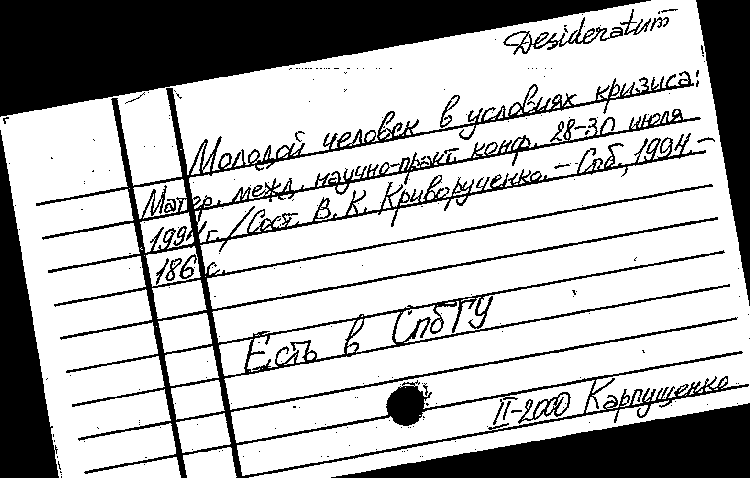 Desideratum
Молодой человек в условиях кризиса:
Матер. межд. научно-практ. конф. 28-30 июля
1994 г. / Сост. В. К. Криворученко. – Спб., 1994. –
186 с.
Есть в СпбГУ
II-2000 Карпущенко